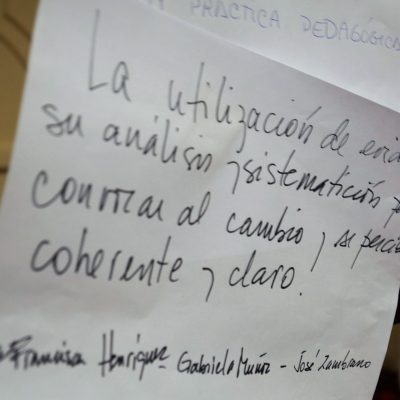 PRÁCTICA PEDAGÓGICA
La utilización de evid
su análisis y sistematición p
convocar al cambio, se perci
coherente y claro.
Francisca Henríquez Gabriela Muñoz - José Zambrano